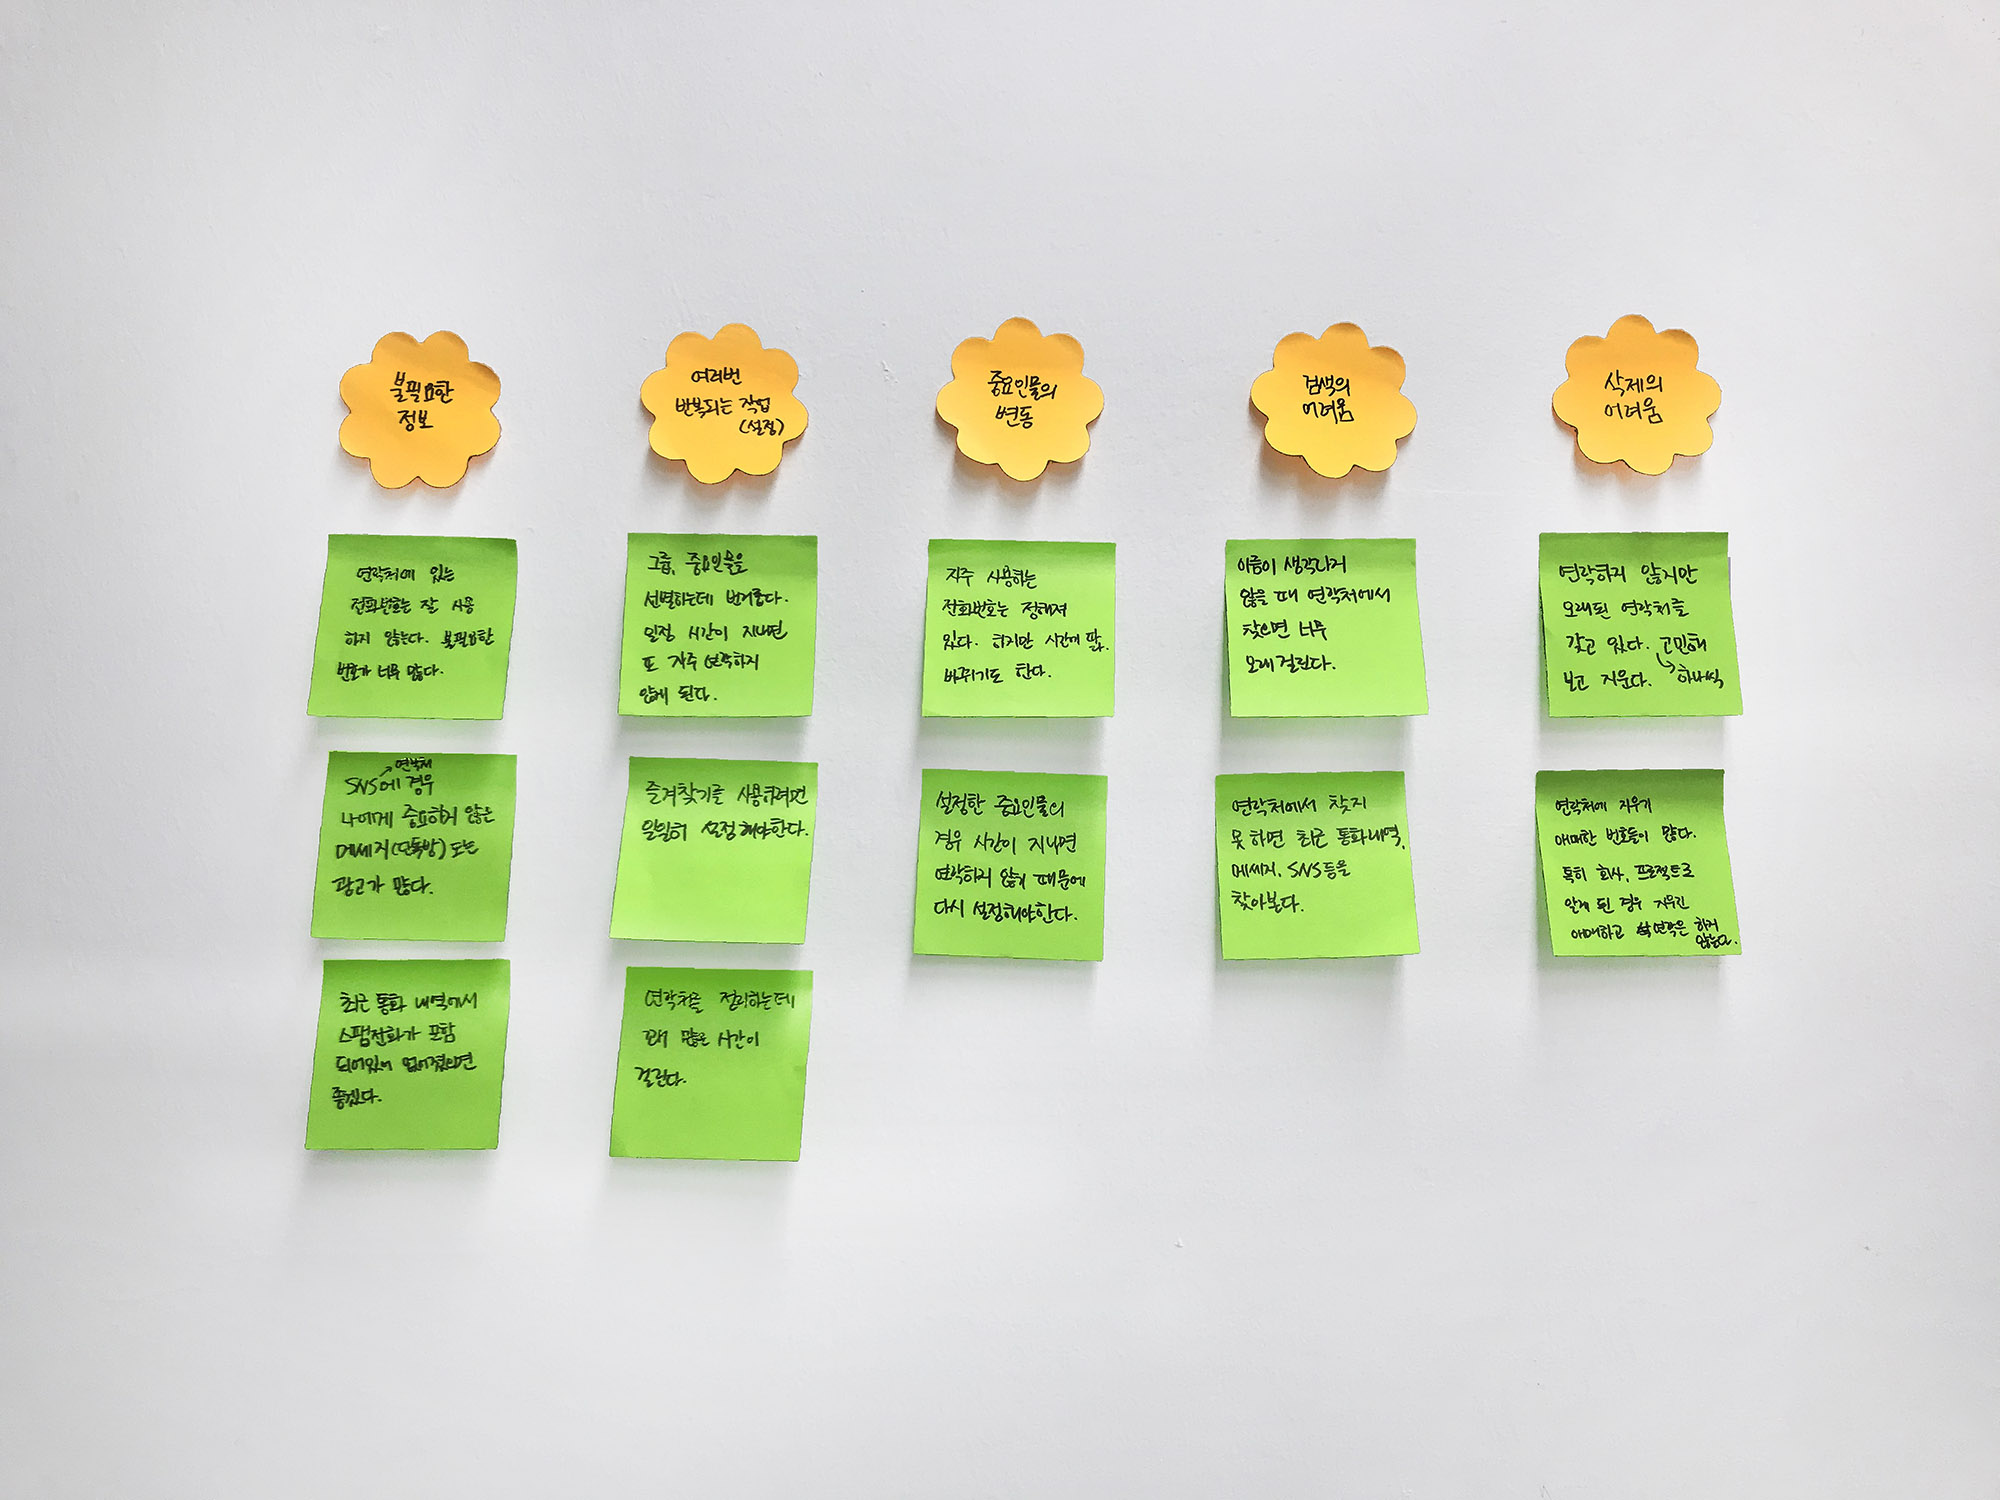 불필요한
정보
연락처에 있는
전화번호는 잘 사용
하지 않는다. 불필요한
번호가 너무 많다.
연락처
SNS에 경우
나에게 중요하지 않은
메세지(단톡방) 또는
광고가 많다.
최근 통화 내역에서
스팸전화가 포함
되어있어 없어졌으면
좋겠다.
여러번
반복되는 작업
(설정)
그룹, 중요인물을
선별하는데 번거롭다.
일정 시간이 지나면
또 자주 연락하지
않게 된다.
즐겨찾기를 사용하려면
일일히 설정해야한다.
연락처를 정리하는데
꽤 많은 시간이
걸린다.
중요인물의
변동
자주 사용하는
전화번호는 정해져
있다. 하지만 시간에 따라
바뀌기도 한다.
설정한 중요인물의
경우 시간이 지나면
연락하지 않기 때문에
다시 설정해야한다.
검색의
어려움
이름이 생각나지
않을 때 연락처에서
찾으면 너무
오래걸린다.
연락처에서 찾지
못하면 최근 통화내역,
메세지, SNS등을
찾아본다.
삭제의
어려움
연락하지 않지만
오래된 연락처를
갖고 있다. 고민해
보고 지운다. 하나씩
연락처에 지우기
애매한 번호들이 많다.
특히 회사, 프로젝트로
알게 된 경우 지우긴
애매하고 연락은 하지
않는다.